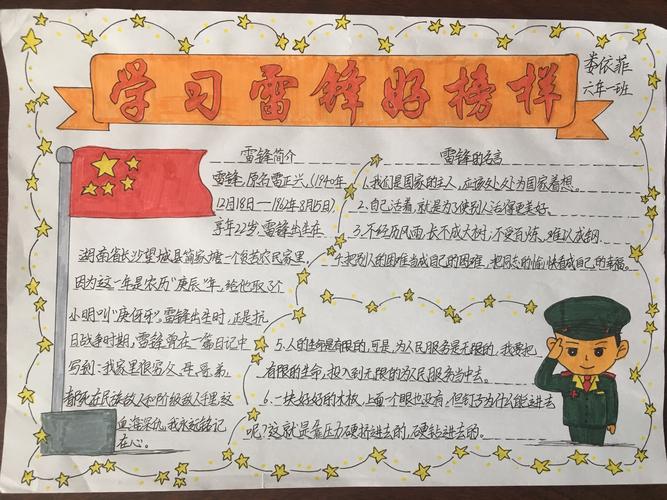 学习雷锋好榜样
娄依菲
六年一班
雷锋简介
雷锋,原名雷正兴,(1940年
12月18日—1962年8月15日),
享年22岁,雷锋出生在
湖南省长沙望城县简家塘一个贫苦农民家里,
因为这一年是农历"庚辰"年,给他取了个
小明叫"庚伢牙",雷锋出生时,正是抗
日战争时期,雷锋曾在一篇日记中
写到:我家里很穷,父、母、哥、弟,
都死在民族敌人和阶级敌人手里,这
血海深仇,我永远铭记
在心。
雷锋的名言
1.我们是国家的主人,应该处处为国家着想。
2.自己活着,就是为了使别人活得更美好。
3.不经历风雨,长不成大树,不受百炼,难以成钢。
4.把别人的困难当成自己的困难,把同志的愉快看成自己的幸福。
5.人的生命是有限的,可是,为人民服务是无限的,我要把
有限的生命,投入到无限的为人民服务当中去。
6.一块好好的木板,上面一个眼也没有,但钉子为什么能进去
呢?这就是靠压力硬挤进去的,硬钻进去的。